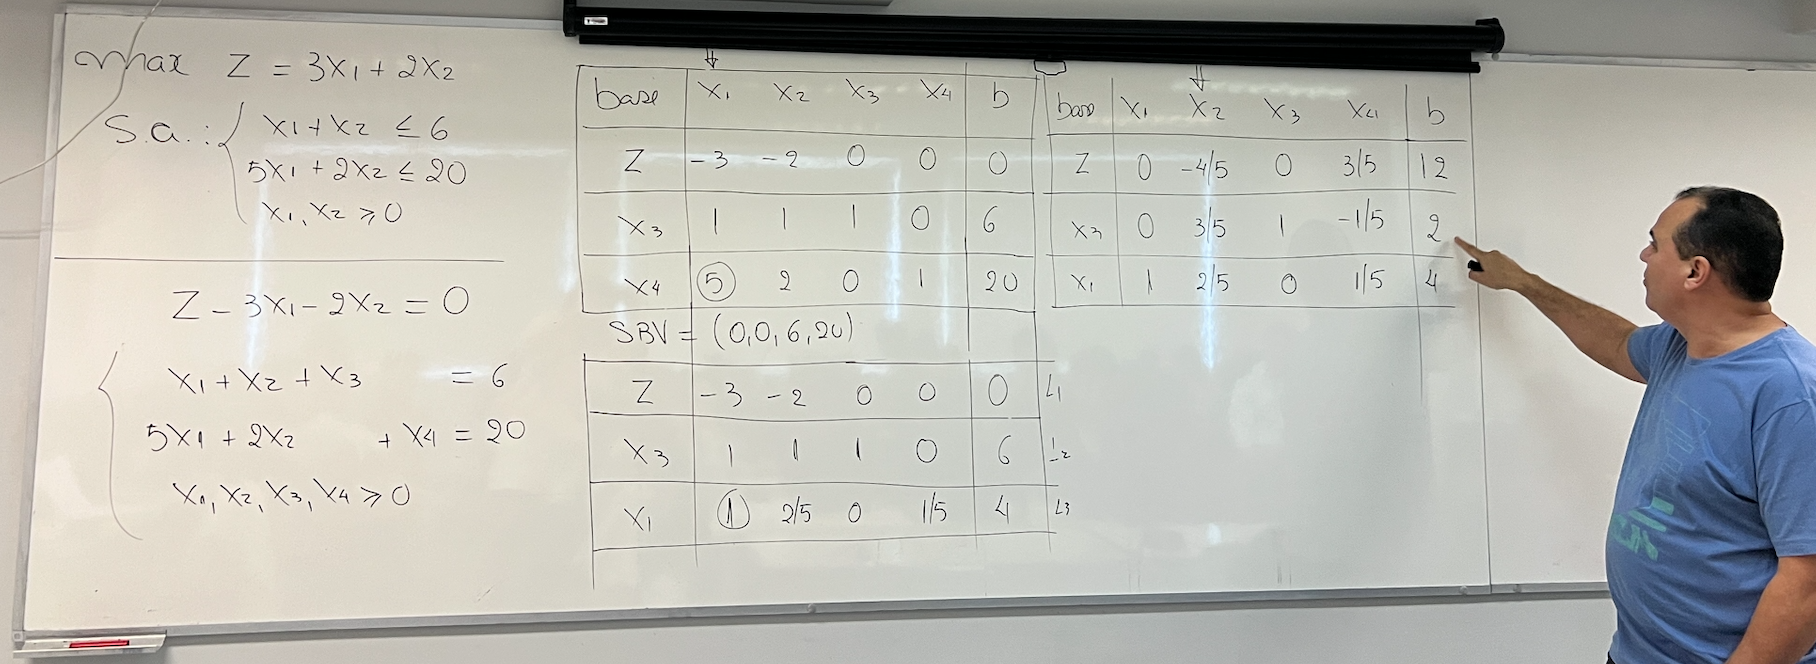 Max Z = 3X1 + 2X2
S.a.: X1 + X2 ≤ 6
5X1 + 2X2 ≤ 20
X1, X2 ≥ 0
Z - 3X1 - 2X2 = 0
X1 + X2 + X3 = 6
5X1 + 2X2 + X4 = 20
X1, X2, X3, X4 ≥ 0
base X1 X2 X3 X4 b
Z -3 -2 0 0 0
X3 1 1 1 0 6
X4 5 2 0 1 20
SBV = (0,0,6,20)
Z -3 -2 0 0 0 L1
X3 1 1 1 0 6 L2
X1 1 2/5 0 1/5 4 L3
base X1 X2 X3 X4 b
Z 0 -4/5 0 3/5 12
X3 0 3/5 1 -1/5 2
X1 1 2/5 0 1/5 4